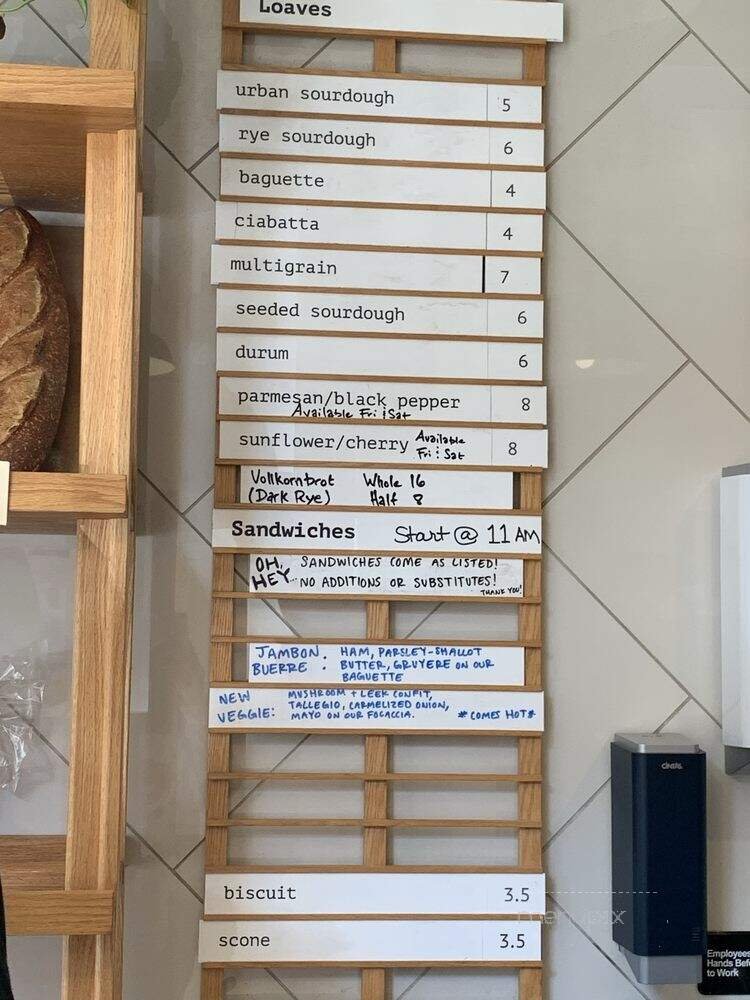 Loaves
urban sourdough 5
rye sourdough 6
baguette 4
ciabatta 4
multigrain 7
seeded sourdough 6
durum 6
parmesan/black pepper 8
Available Fri & Sat
sunflower/cherry Available Fri & Sat 8
Vollkornbrot Whole 16
(Dark Rye) Half 8
Sandwiches Start @ 11 AM
OH, HEY... SANDWICHES COME AS LISTED!
NO ADDITIONS OR SUBSTITUTES!
THANK YOU!
JAMBON . HAM, PARSLEY-SHALLOT
BUERRE : BUTTER, GRUYERE ON OUR
BAGUETTE
NEW MUSHROOM + LEEK CONFIT,
VEGGIE: TALLEGIO, CARMELIZED ONION,
MAYO ON OUR FOCACCIA. *COMES HOT*
biscuit 3.5
scone 3.5
CINTAS
menupix
Employees
Hands Bef
to Work